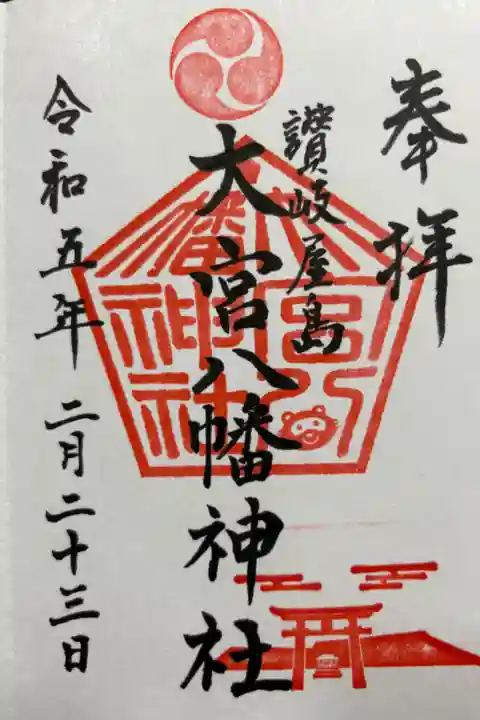 奉拝
讃岐屋島
大宮八幡神社
令和五年二月二十三日
大宮八幡神社